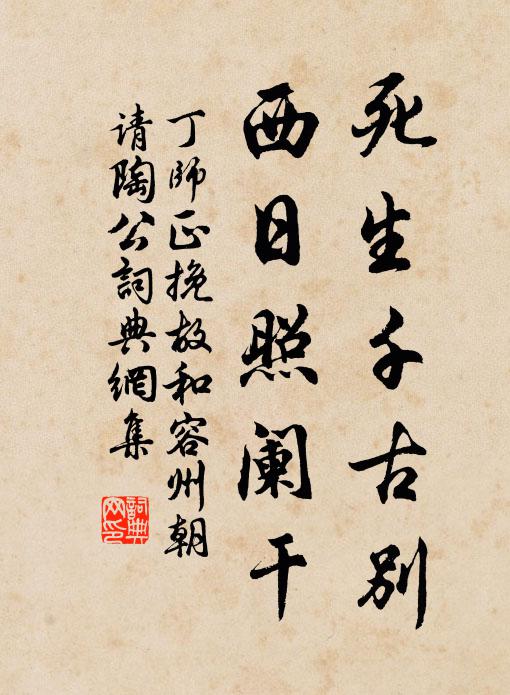 死生千古别
西日照阑干
丁師正挽故和容州朝
请陶公詞典網集
詞典网印